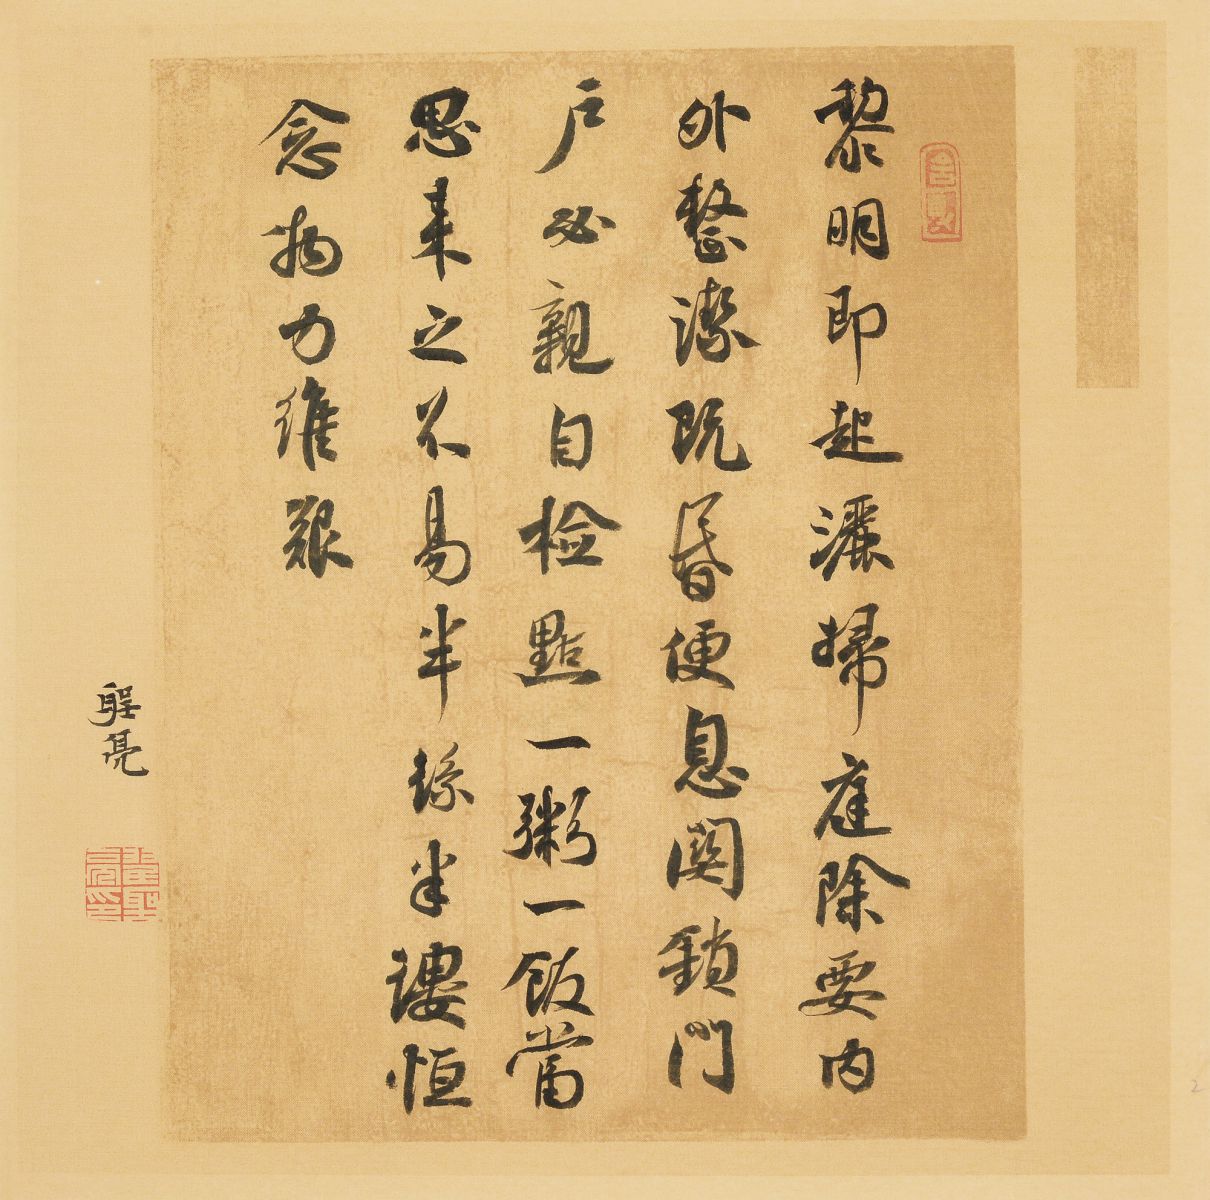 黎明即起灑掃庭除要内
外整潔既昏便息関鎖門
戶必親自檢點一粥一飯當
思来之不易半絲半縷恒
念物力維艱